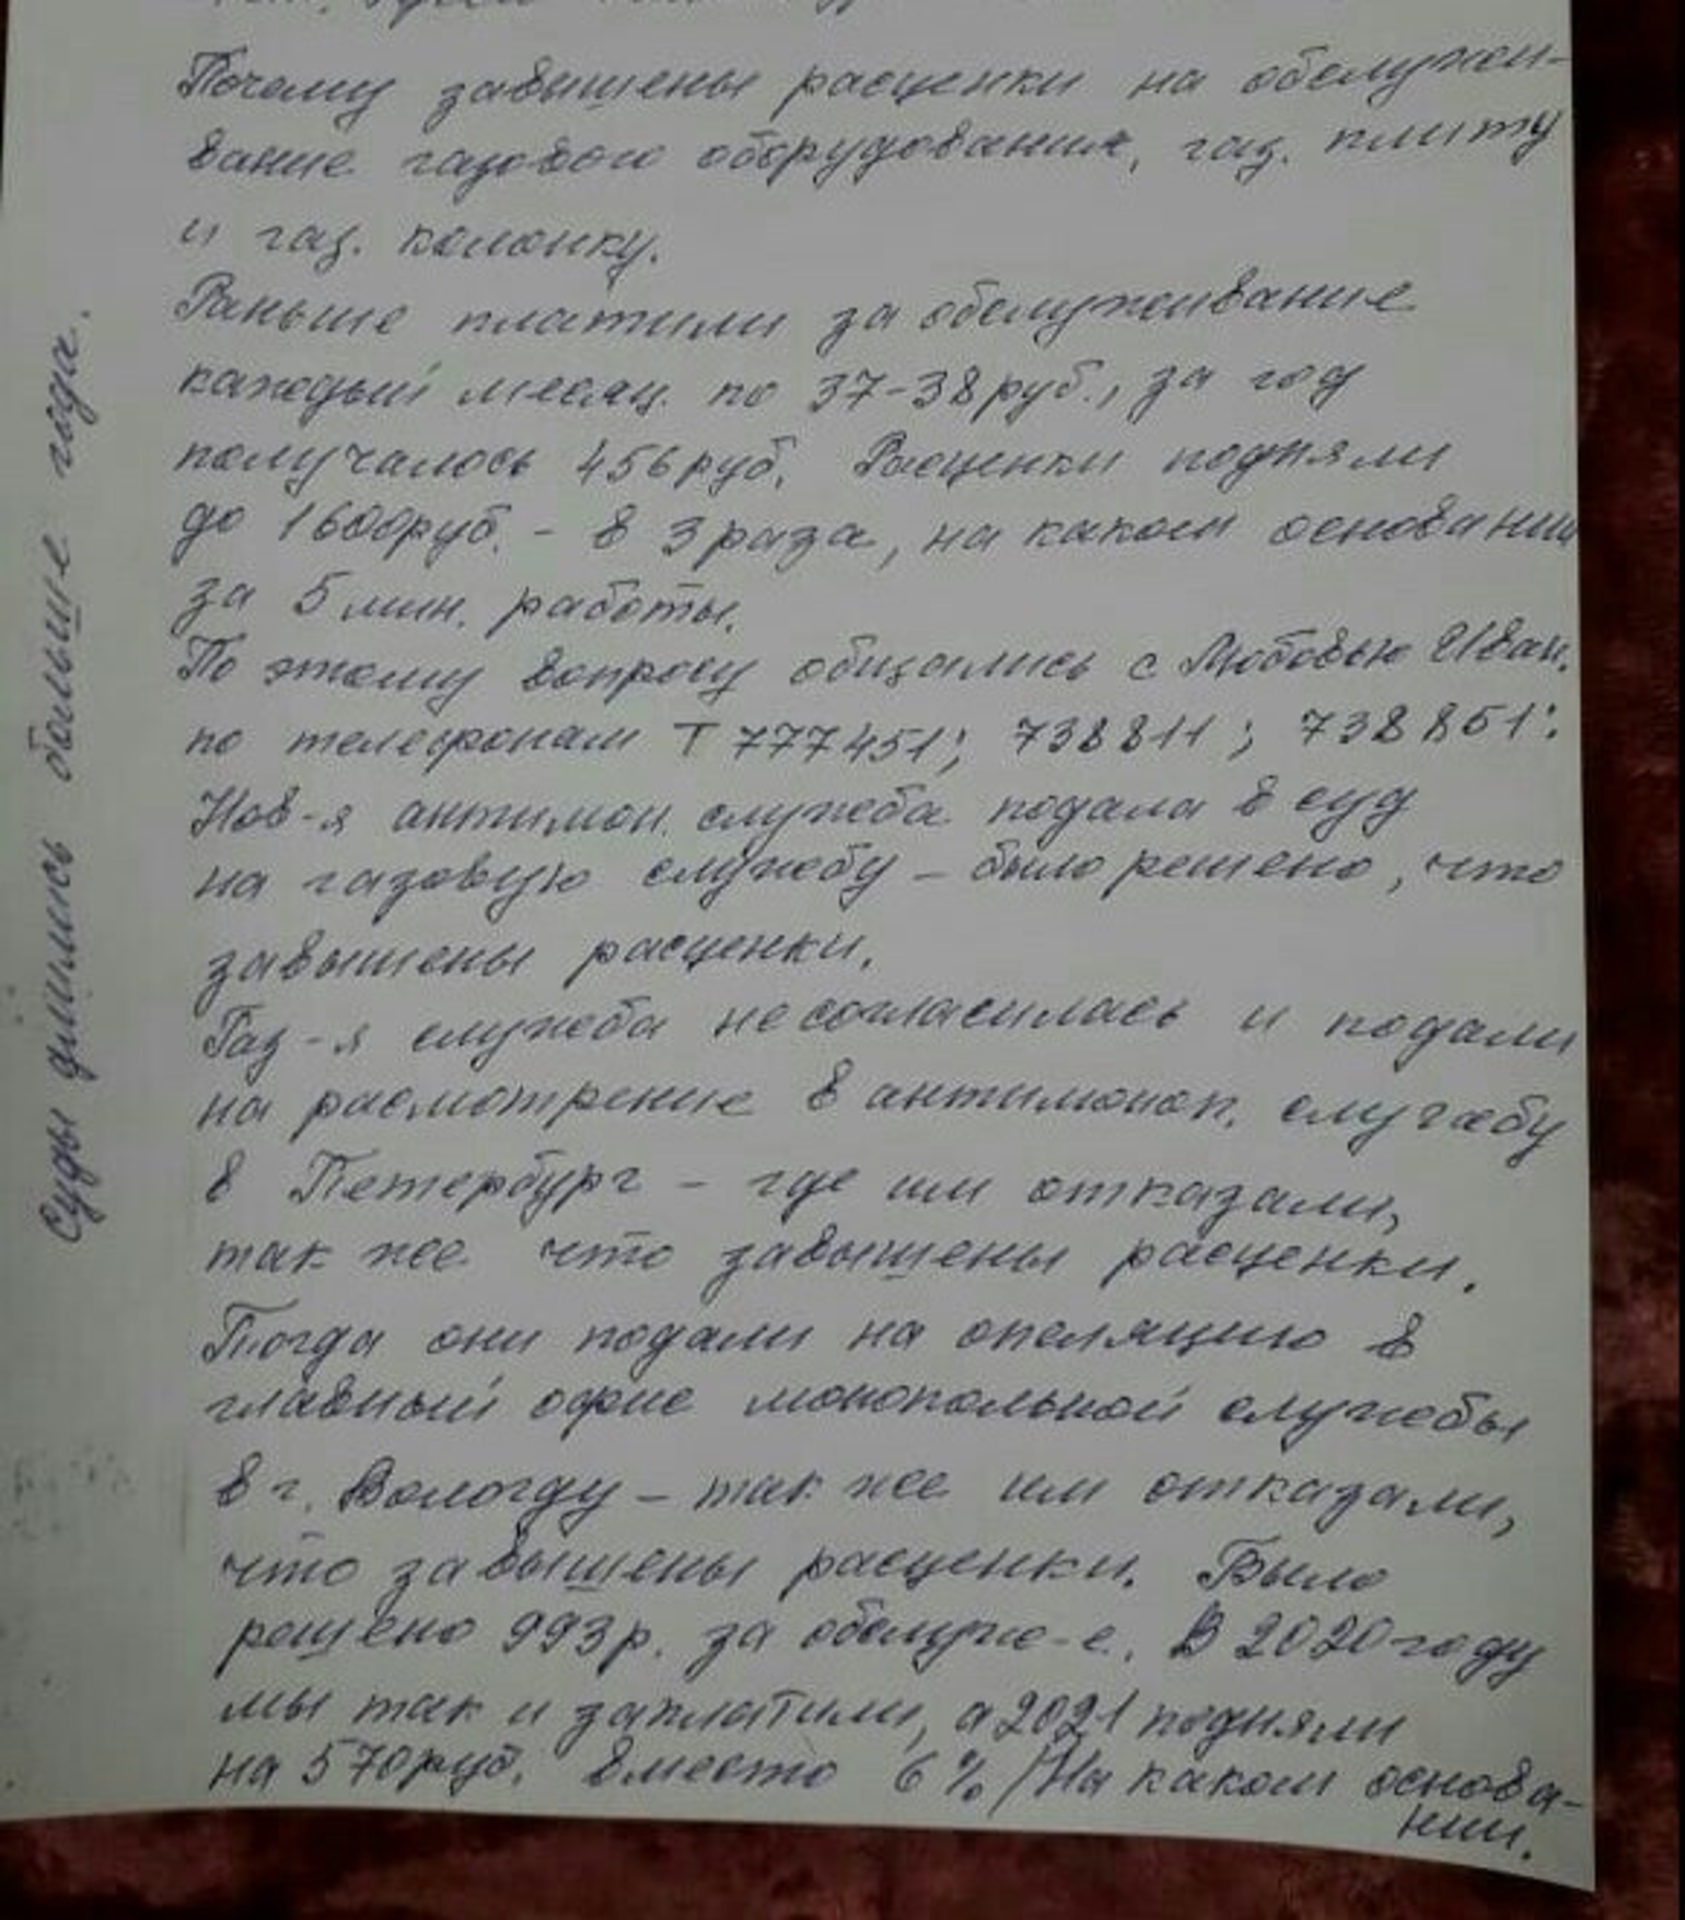 Почему завышены расценки на обслужи-
вание газового оборудования, газ. плиту
и газ. колонку.
Раньше платили за обслуживание
каждый месяц по 37-38 руб., за год
получалось 456 руб. Расценки подняли
до 1600 руб. - в 3 раза, на каком основании
за 5 мин. работы.
По этому вопросу общались с Любовью Иван.
по телефонам Т 777451; 738811; 738851:
Нов-я антимон. служба подала в суд
на газовую службу - было решено, что
завышены расценки.
Газ-я служба не согласилась и подали
на расмотрение в антимоноп. службу
в Петербург - где им отказали,
так же что завышены расценки.
Тогда они подали на опеляцию в
главный офис монопольной службы
в г. Вологду - так же им отказали,
что завышены расценки. Было
решено 993 р. за обслужи-е. В 2020 году
мы так и заплатили, а 2021 подняли
на 570 руб. вместо 6% / На каком основа-
нии.
Суды длились больше года.